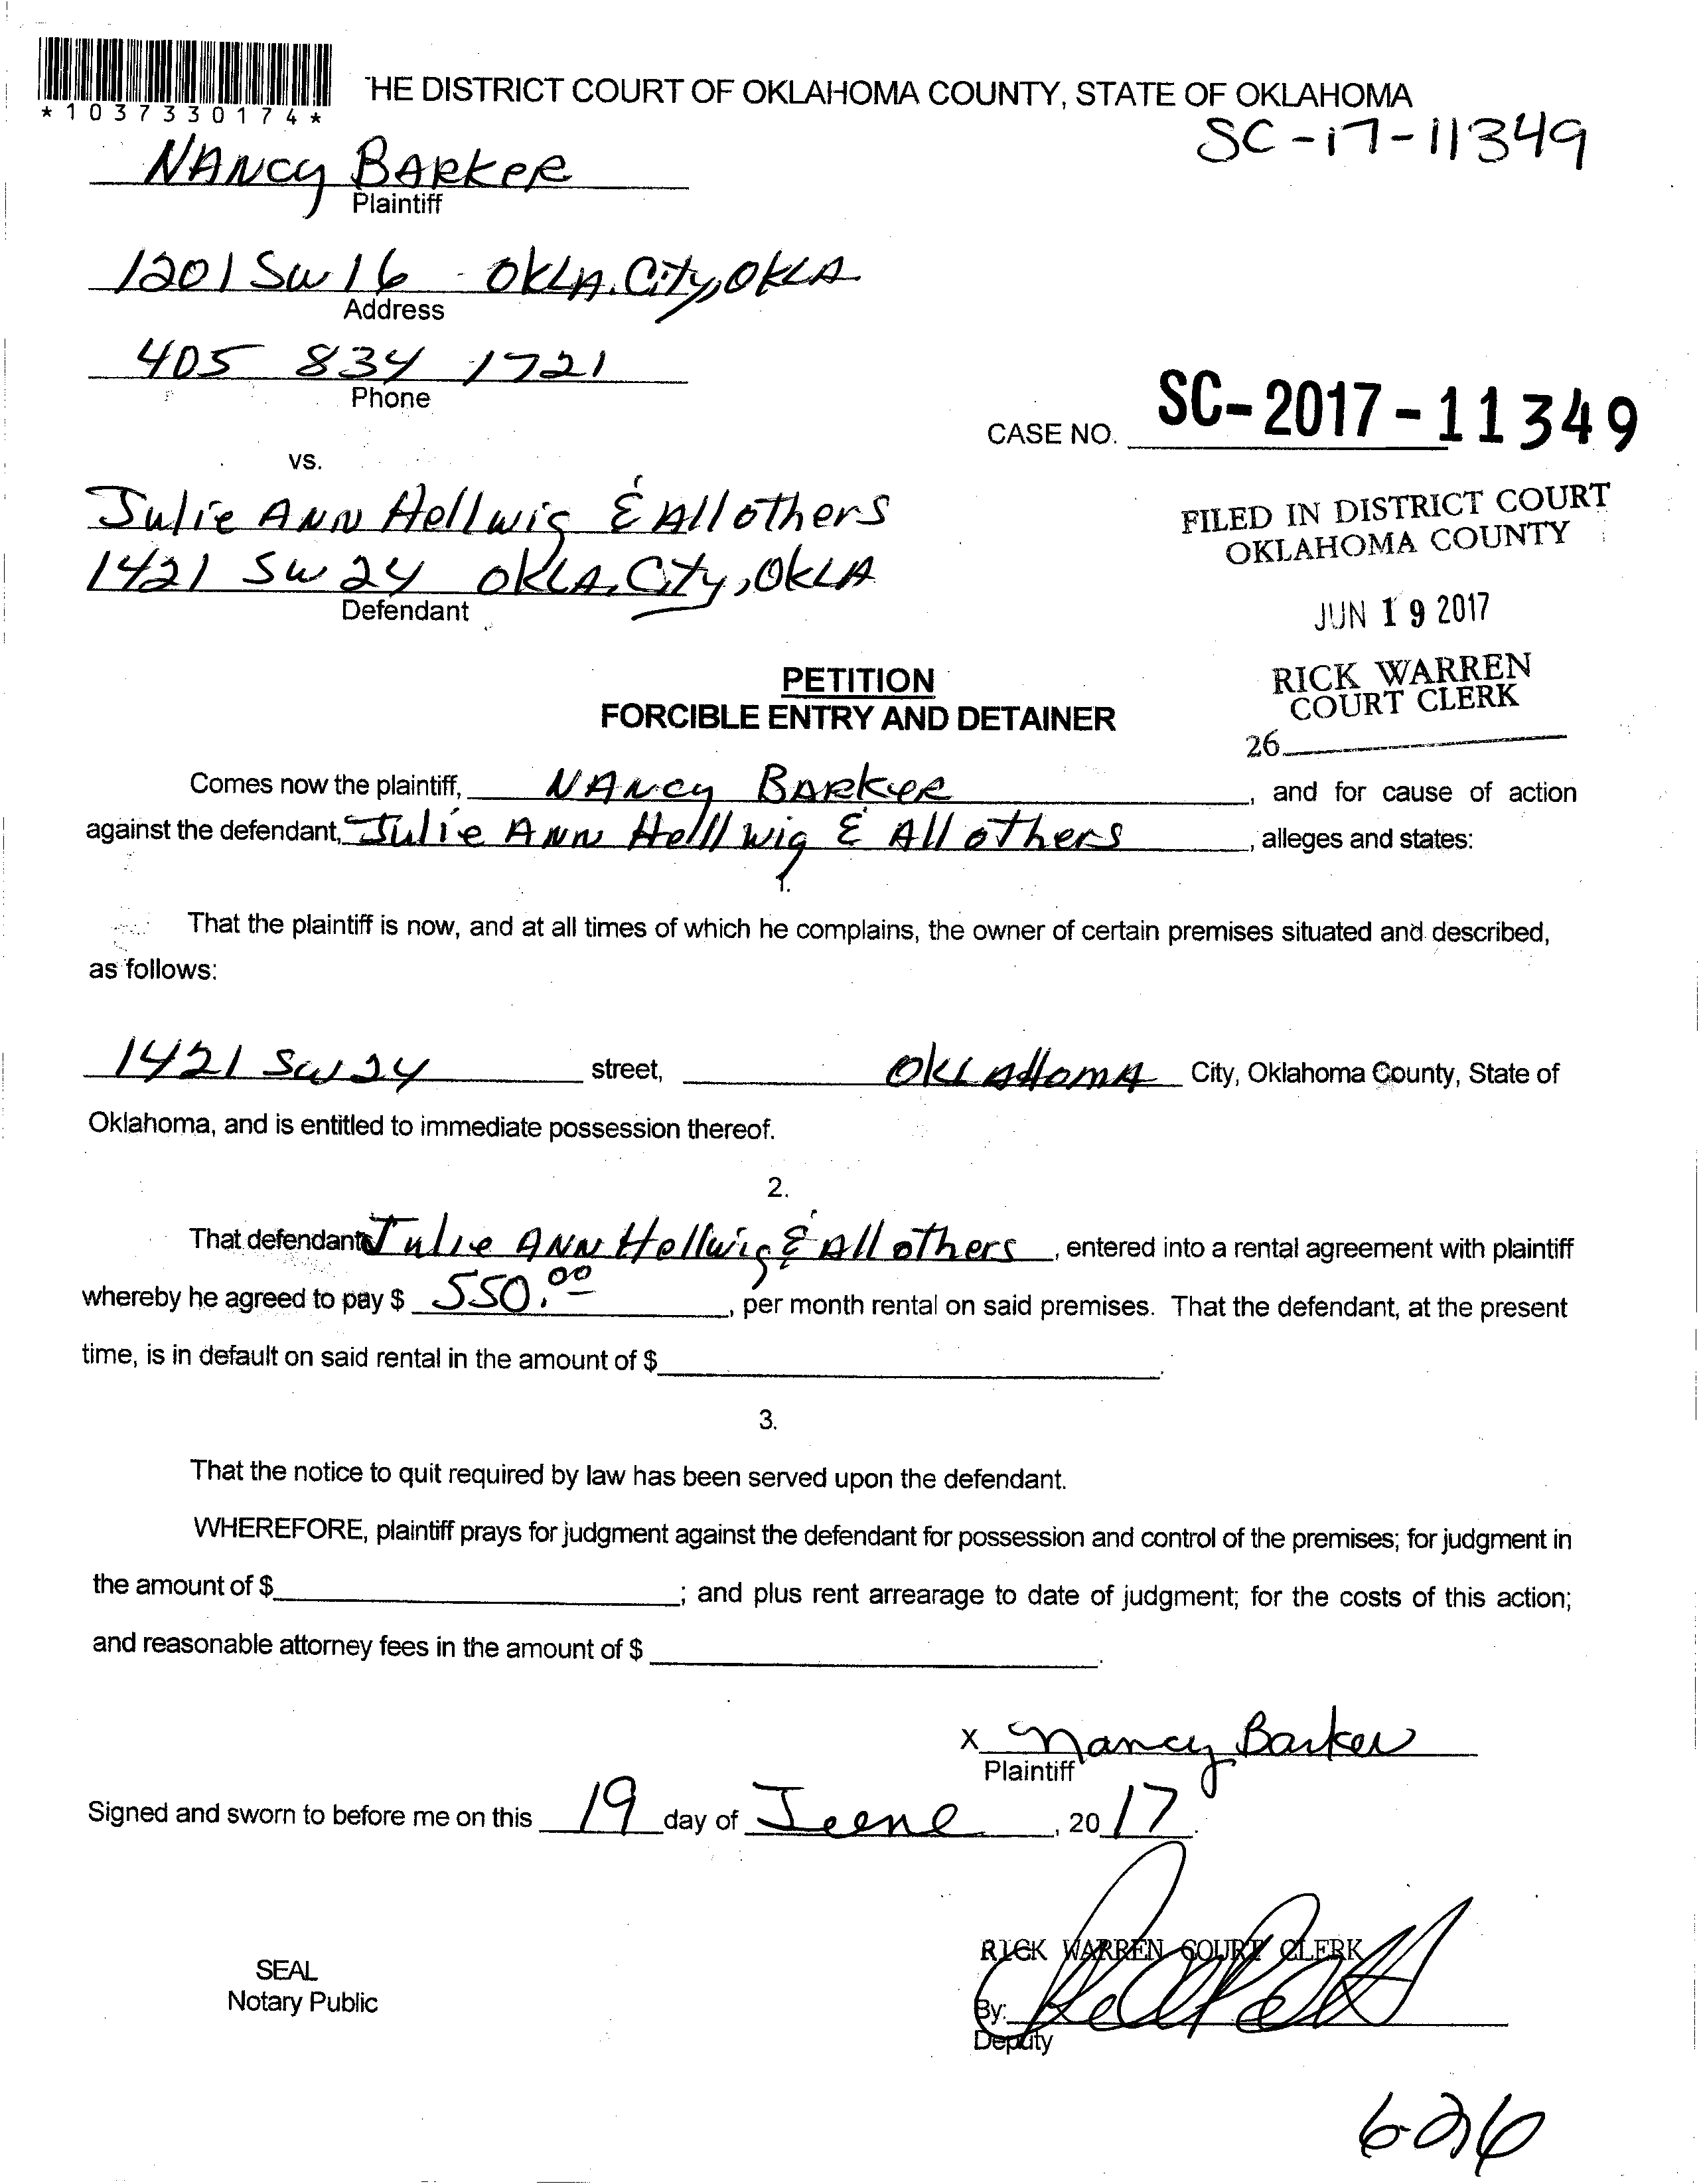 *1037330174*
THE DISTRICT COURT OF OKLAHOMA COUNTY, STATE OF OKLAHOMA
SC-17-11349
NANCY BARKER
Plaintiff
1201 SW 16 - OKLA. City, OKLA
Address
405 834 1721
Phone
CASE NO. SC-2017-11349
vs.
Julie ANN Hellwig & All others
1421 SW 24 OKLA, City, OKLA
Defendant
FILED IN DISTRICT COURT
OKLAHOMA COUNTY
JUN 19 2017
RICK WARREN
COURT CLERK
26
PETITION
FORCIBLE ENTRY AND DETAINER
Comes now the plaintiff, NANCY BARKER, and for cause of action
against the defendant, Julie ANN Helllwig & All others, alleges and states:
1.
That the plaintiff is now, and at all times of which he complains, the owner of certain premises situated and described,
as follows:
1421 SW 24 street, OKLAHOMA City, Oklahoma County, State of
Oklahoma, and is entitled to immediate possession thereof.
2.
That defendant Julie ANN Hellwig & All others, entered into a rental agreement with plaintiff
whereby he agreed to pay $ 550.00, per month rental on said premises. That the defendant, at the present
time, is in default on said rental in the amount of $ .
3.
That the notice to quit required by law has been served upon the defendant.
WHEREFORE, plaintiff prays for judgment against the defendant for possession and control of the premises; for judgment in
the amount of $ ; and plus rent arrearage to date of judgment; for the costs of this action;
and reasonable attorney fees in the amount of $ .
X Nancy Barker
Plaintiff
Signed and sworn to before me on this 19 day of June, 20 17.
RICK WARREN COURT CLERK
SEAL
Notary Public
By:
Deputy
626